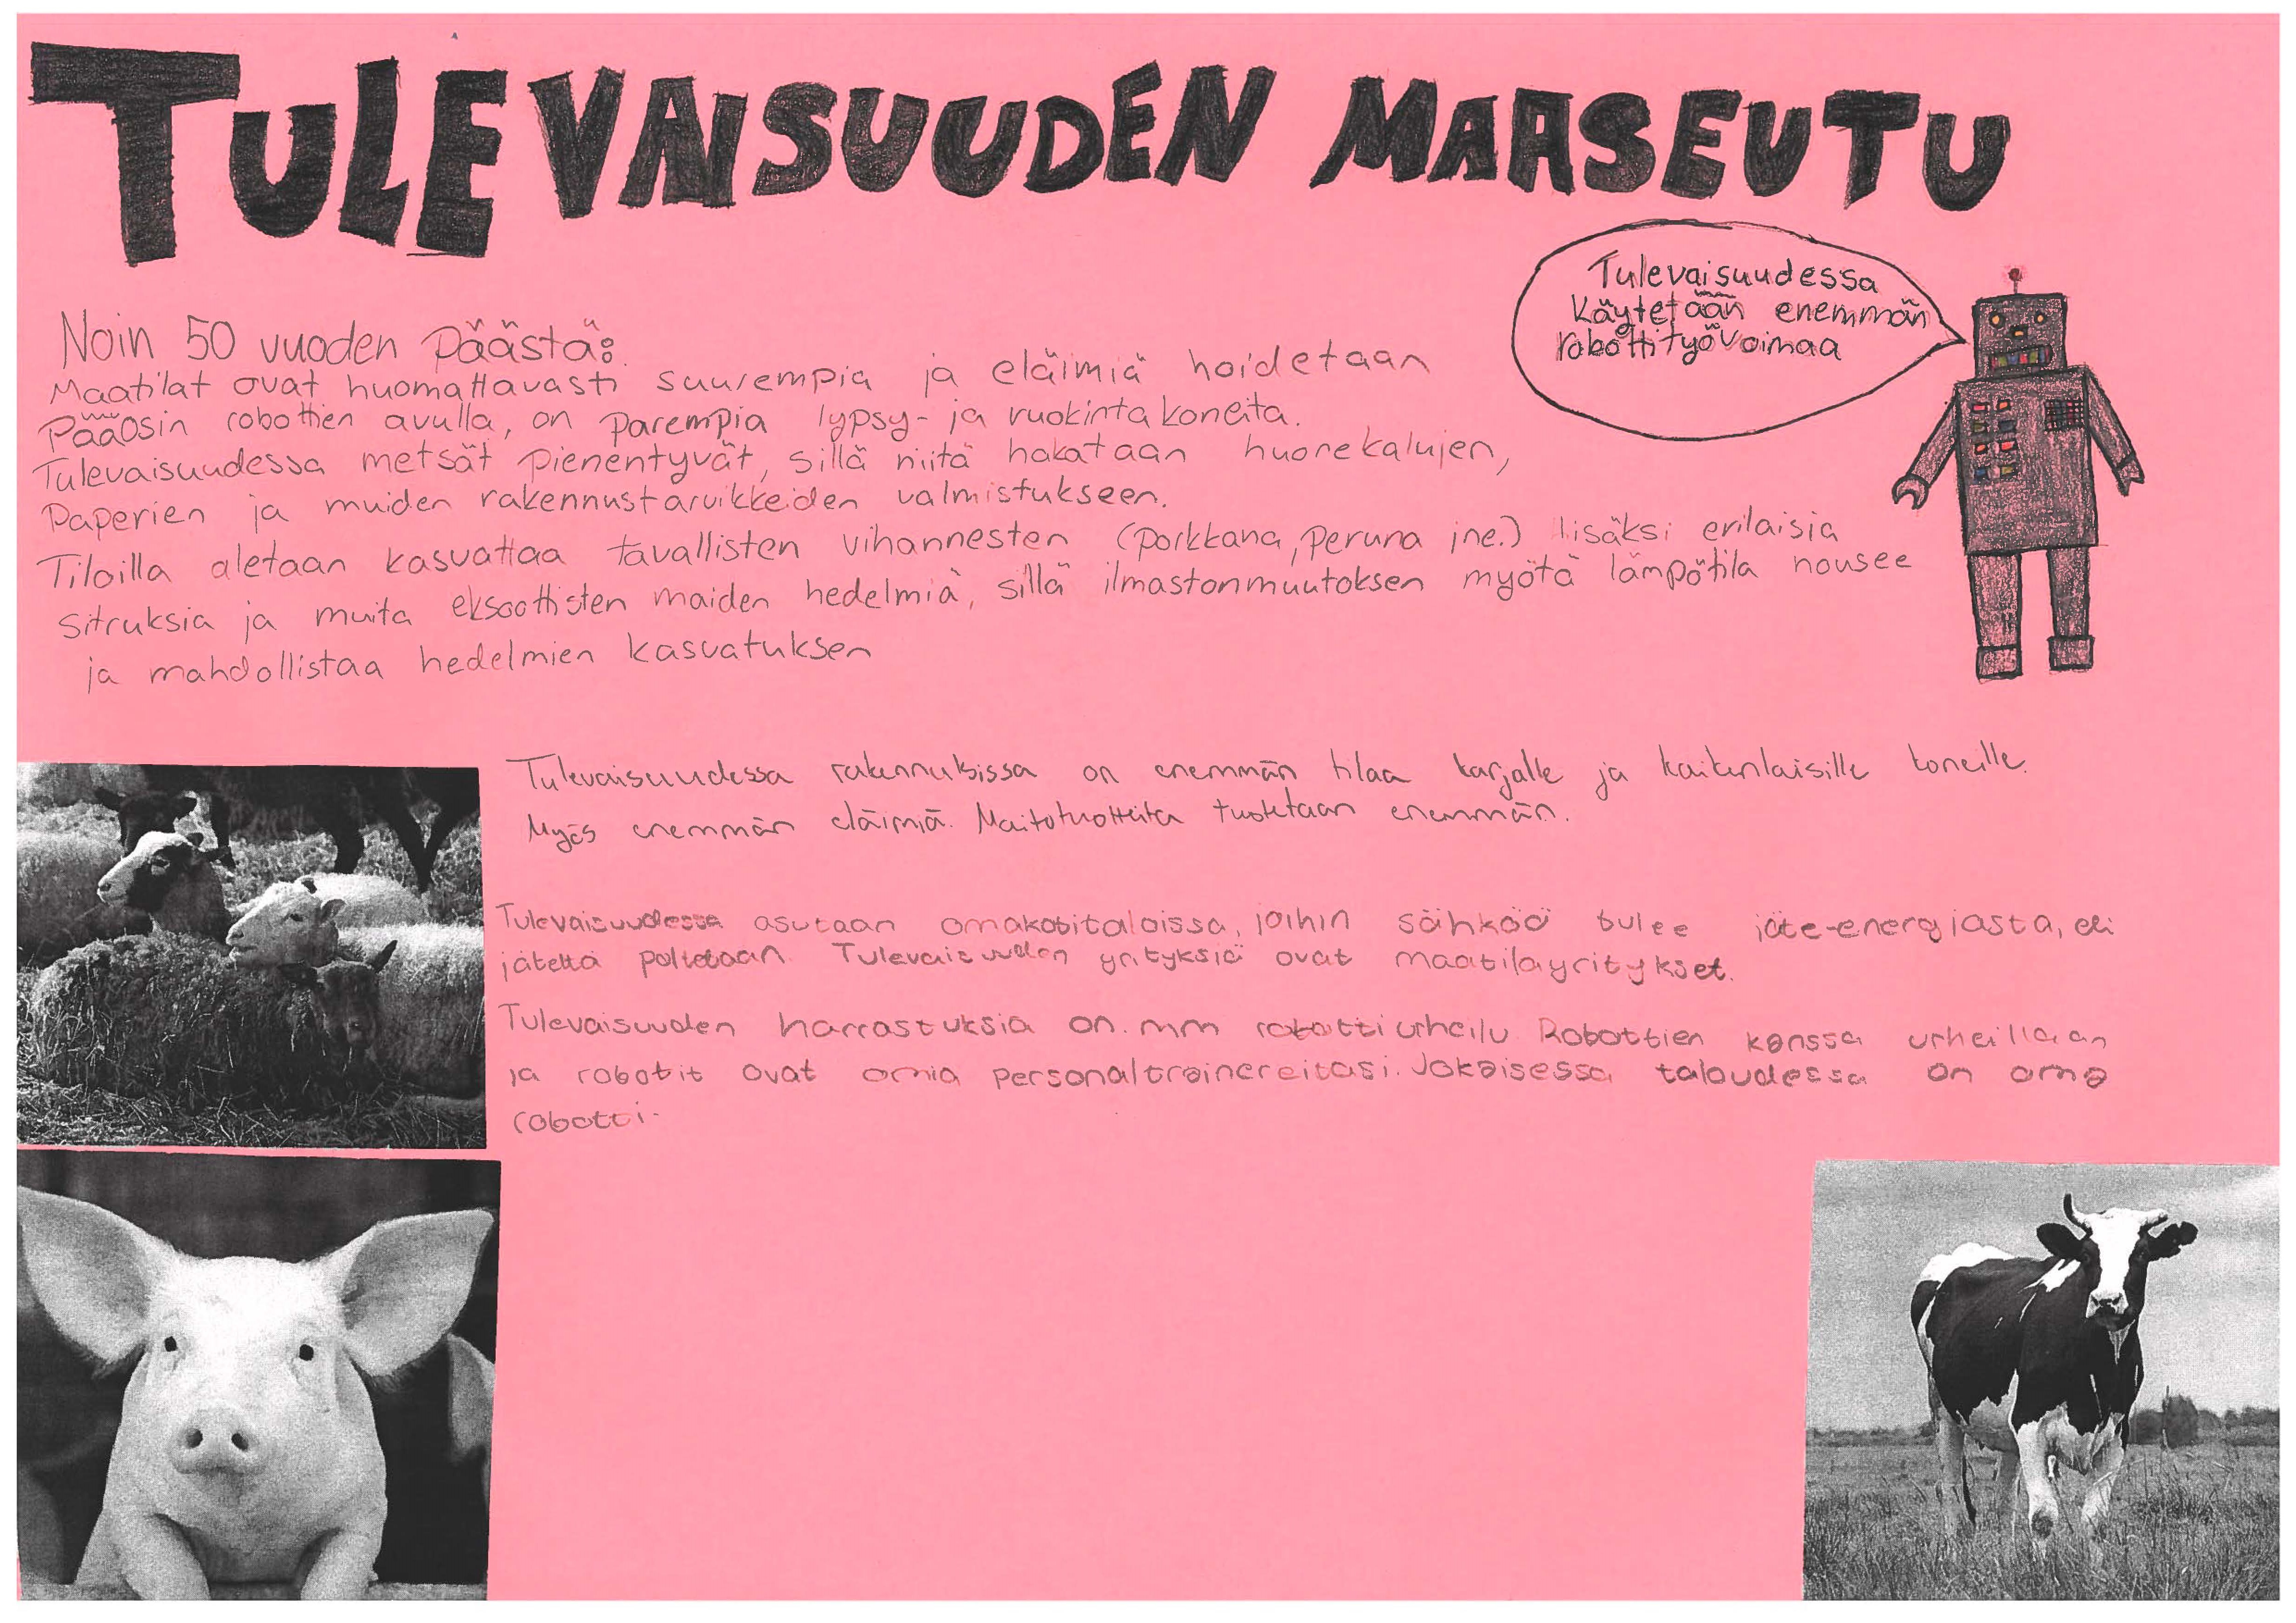 TULEVAISUUDEN MAASEUTU
Tulevaisuudessa
käytetään enemmän
robottityövoimaa
Noin 50 vuoden päästä:
Maatilat ovat huomattavasti suurempia ja eläimiä hoidetaan
pääosin robottien avulla, on parempia lypsy- ja ruokintakoneita.
Tulevaisuudessa metsät pienentyvät, sillä niitä hakataan huonekalujen,
paperien ja muiden rakennustarvikkeiden valmistukseen.
Tiloilla aletaan kasvattaa tavallisten vihannesten (porkkana, peruna jne.) lisäksi erilaisia
sitruksia ja muita eksoottisten maiden hedelmiä, sillä ilmastonmuutoksen myötä lämpötila nousee
ja mahdollistaa hedelmien kasvatuksen
Tulevaisuudessa rakennuksissa on enemmän tilaa karjalle ja kaikenlaisille koneille.
Myös enemmän eläimiä. Maitotuotteita tuotetaan enemmän.
Tulevaisuudessa asutaan omakotitaloissa, joihin sähköä tulee jäte-energiasta, eli
jätettä poltetaan. Tulevaisuuden yrityksiä ovat maatilayritykset.
Tulevaisuuden harrastuksia on mm robottiurheilu. Robottien kanssa urheillaan
ja robotit ovat omia personaltrainereitasi. Jokaisessa taloudessa on oma
robotti.